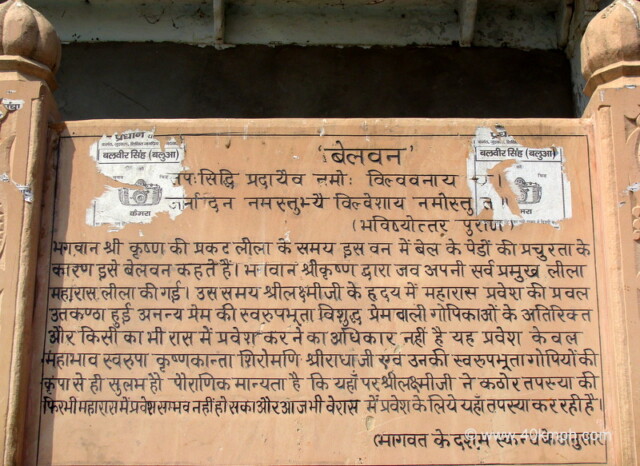 'बेलवन'
प्रधान
बलवीर सिंह (बलुआ)
कैमरा
बलवीर सिंह (बलुआ)
कैमरा
तपः सिद्धि प्रदायैव नमोः विल्ववनाय च
जनार्दन नमस्तुभ्यै विल्वेशाय नमोस्तुते ॥
(भविष्योत्तर पुराण)
भगवान श्री कृष्ण की प्रकट लीला के समय इस वन में बेल के पेडों की प्रचुरता के
कारण इसे बेलवन कहते हैं। भगवान श्रीकृष्ण द्वारा जब अपनी सर्व प्रमुख लीला
महारास लीला की गई। उस समय श्रीलक्ष्मीजी के हृदय में महारास प्रवेश की प्रवल
उतकण्ठा हुई अनन्य प्रेम की स्वरुपभूता विशुद्ध प्रेम वाली गोपिकाओं के अतिरिक्त
और किसी का भी रास में प्रवेश करने का अधिकार नहीं है यह प्रवेश केवल
महाभाव स्वरुपा कृष्णकान्ता शिरोमणि श्रीराधाजी एंव उनकी स्वरुपभूता गोपियों की
कृपा से ही सुलभ है। पौराणिक मान्यता है कि यहाँ पर श्रीलक्ष्मीजी ने कठोर तपस्या की
फिर भी महारास में प्रवेश सम्भव नहीं हो सका और आज भी वे रास में प्रवेश के लिये यहाँ तपस्या कर रही है।
(भागवत के दशम स्कन्ध के अनुसार
© www.40kmph.com